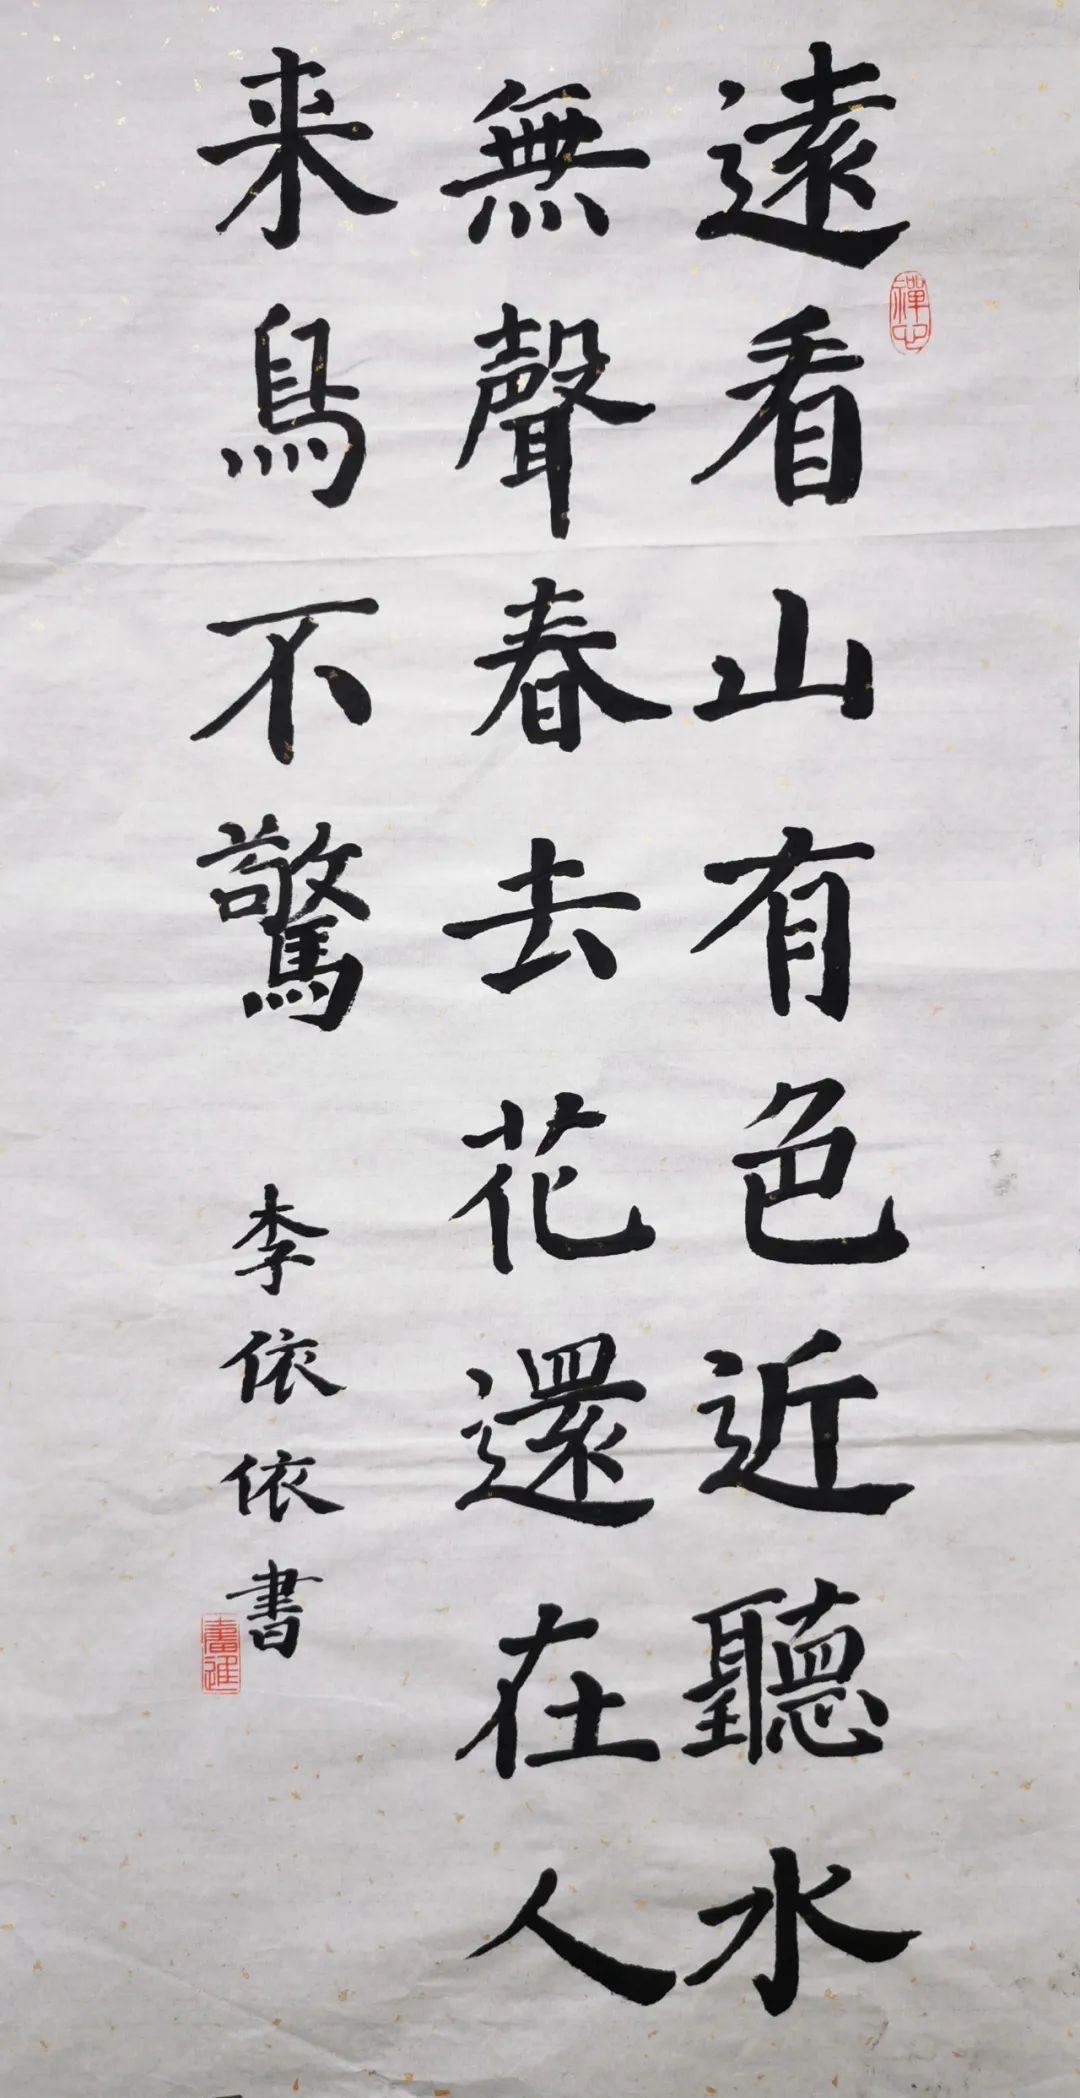 遠看山有色近聽水
無聲春去花還在人
来鳥不驚
李依依書
禪心